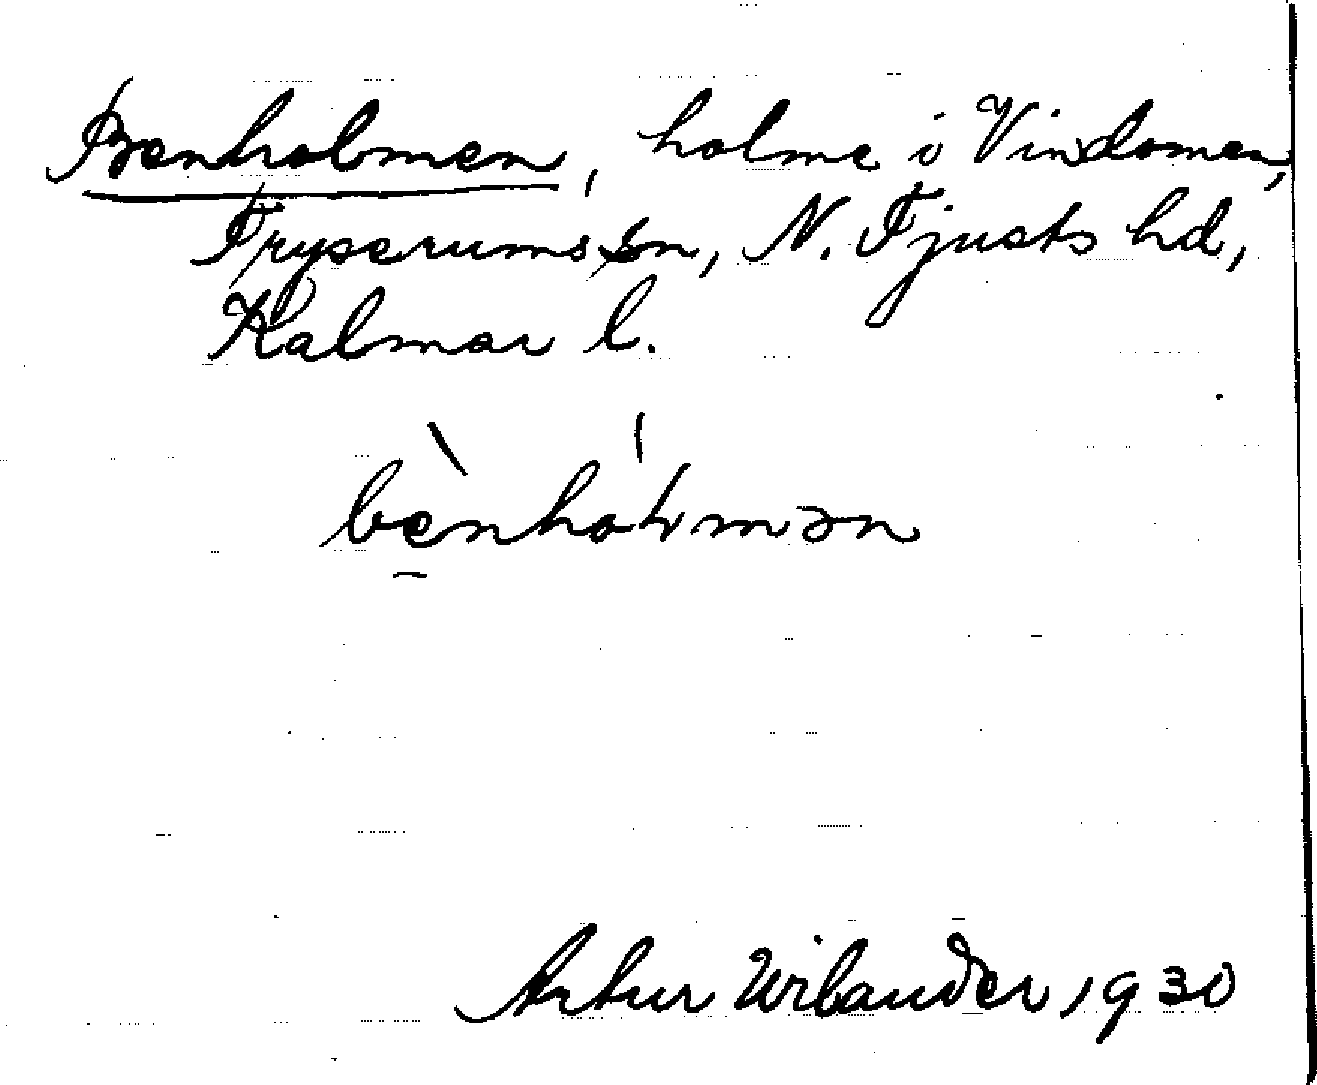 Benholmen, holme i Vindomen,
Tryserums sn, N. Tjusts hd,
Kalmar l.
bènhȯlmən
Artur Wilander 1930